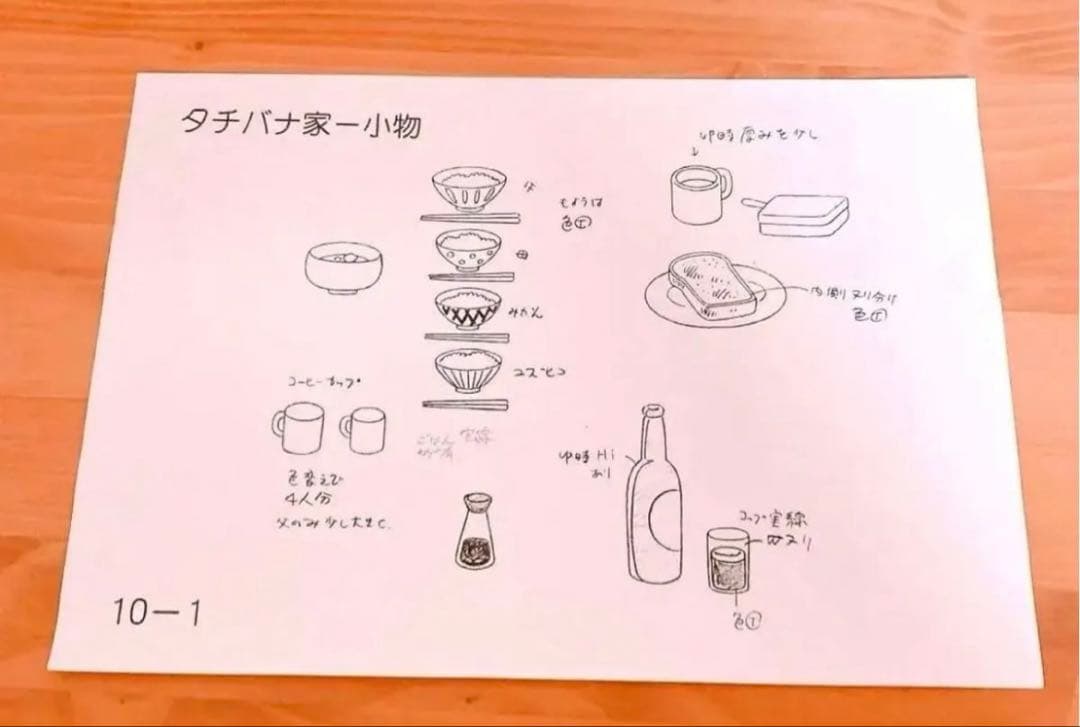 タチバナ家ー小物
厚みを少し
父
もようは
色T
母
みかん
内側ヌリ分け
色T
ユズヒコ
コーヒーカップ
ごはん 実線
Hi
あり
色変えで
4人分
父のみ少し大きく
コップ実線
ヌリ
色T
10ー1